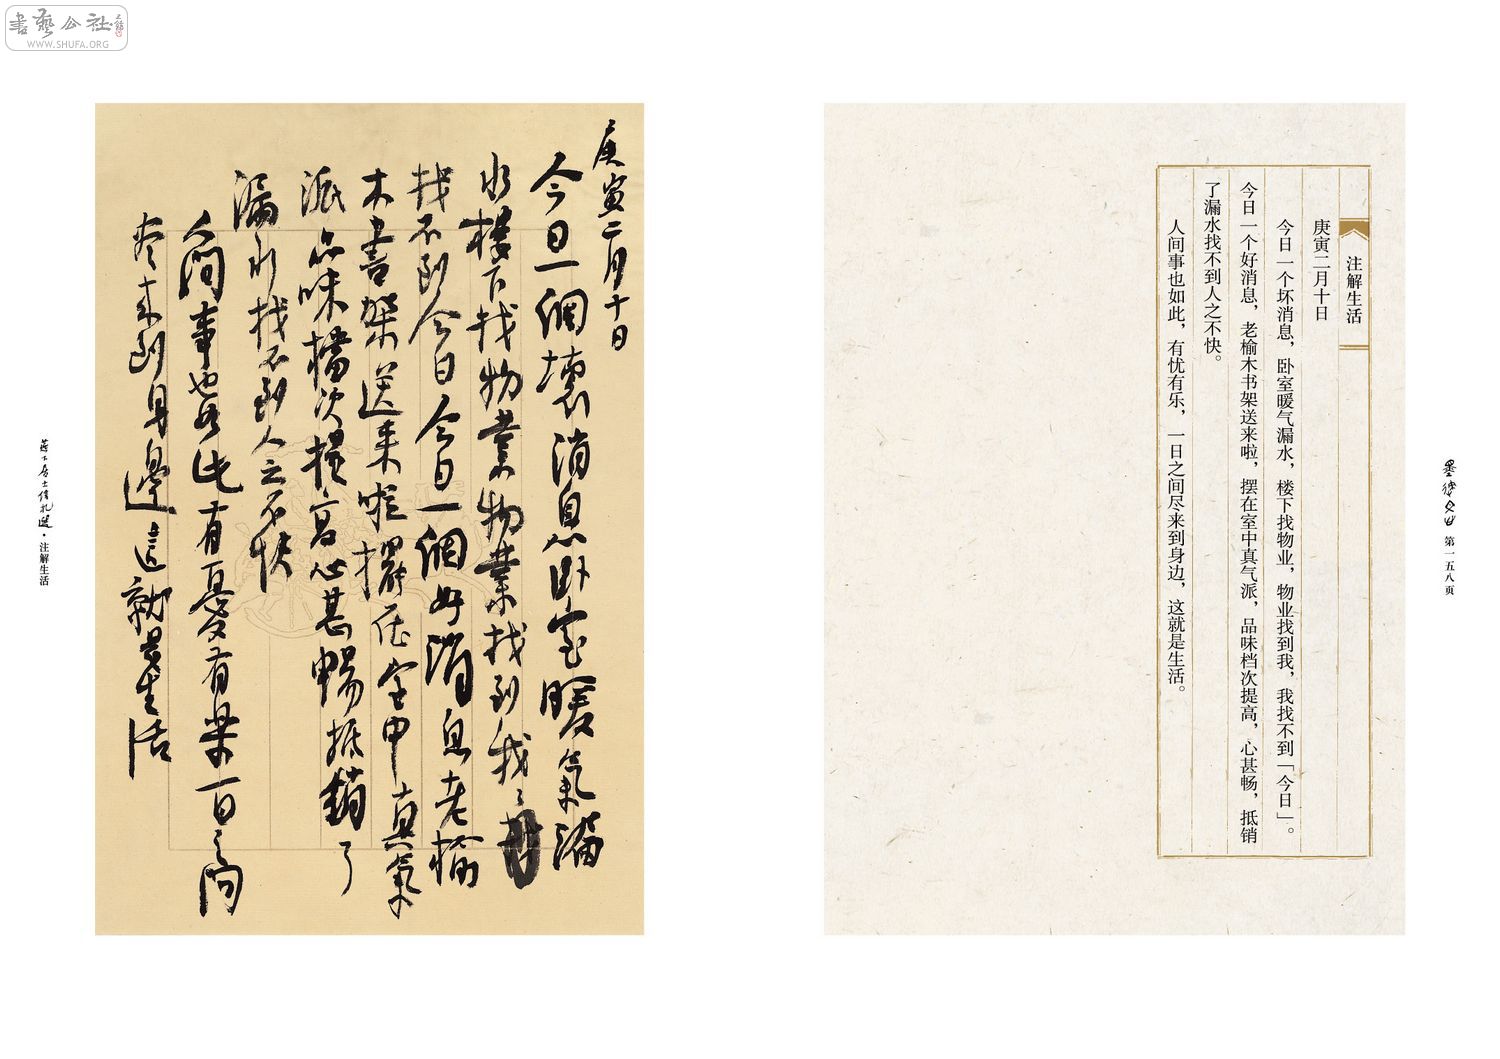 書藝公社
WWW.SHUFA.ORG
庚寅二月十日
今日一個壞消息卧室暖氣漏
水樓下找物業物業找到我〻
找不到今日今日一個好消息老榆
木書架送來啦擺在室中真氣
派品味檔次提高心甚暢抵銷了
漏水找不到人之不快
人間事也如此有憂有樂一日之間
尽来到身邊這就是生活
下居士信札選·注解生活
注解生活
庚寅二月十日
今日一个坏消息，卧室暖气漏水，楼下找物业，物业找到我，我找不到「今日」。
今日一个好消息，老榆木书架送来啦，摆在室中真气派，品味档次提高，心甚畅，抵销
了漏水找不到人之不快。
人间事也如此，有忧有乐，一日之间尽来到身边，这就是生活。
第一五八页